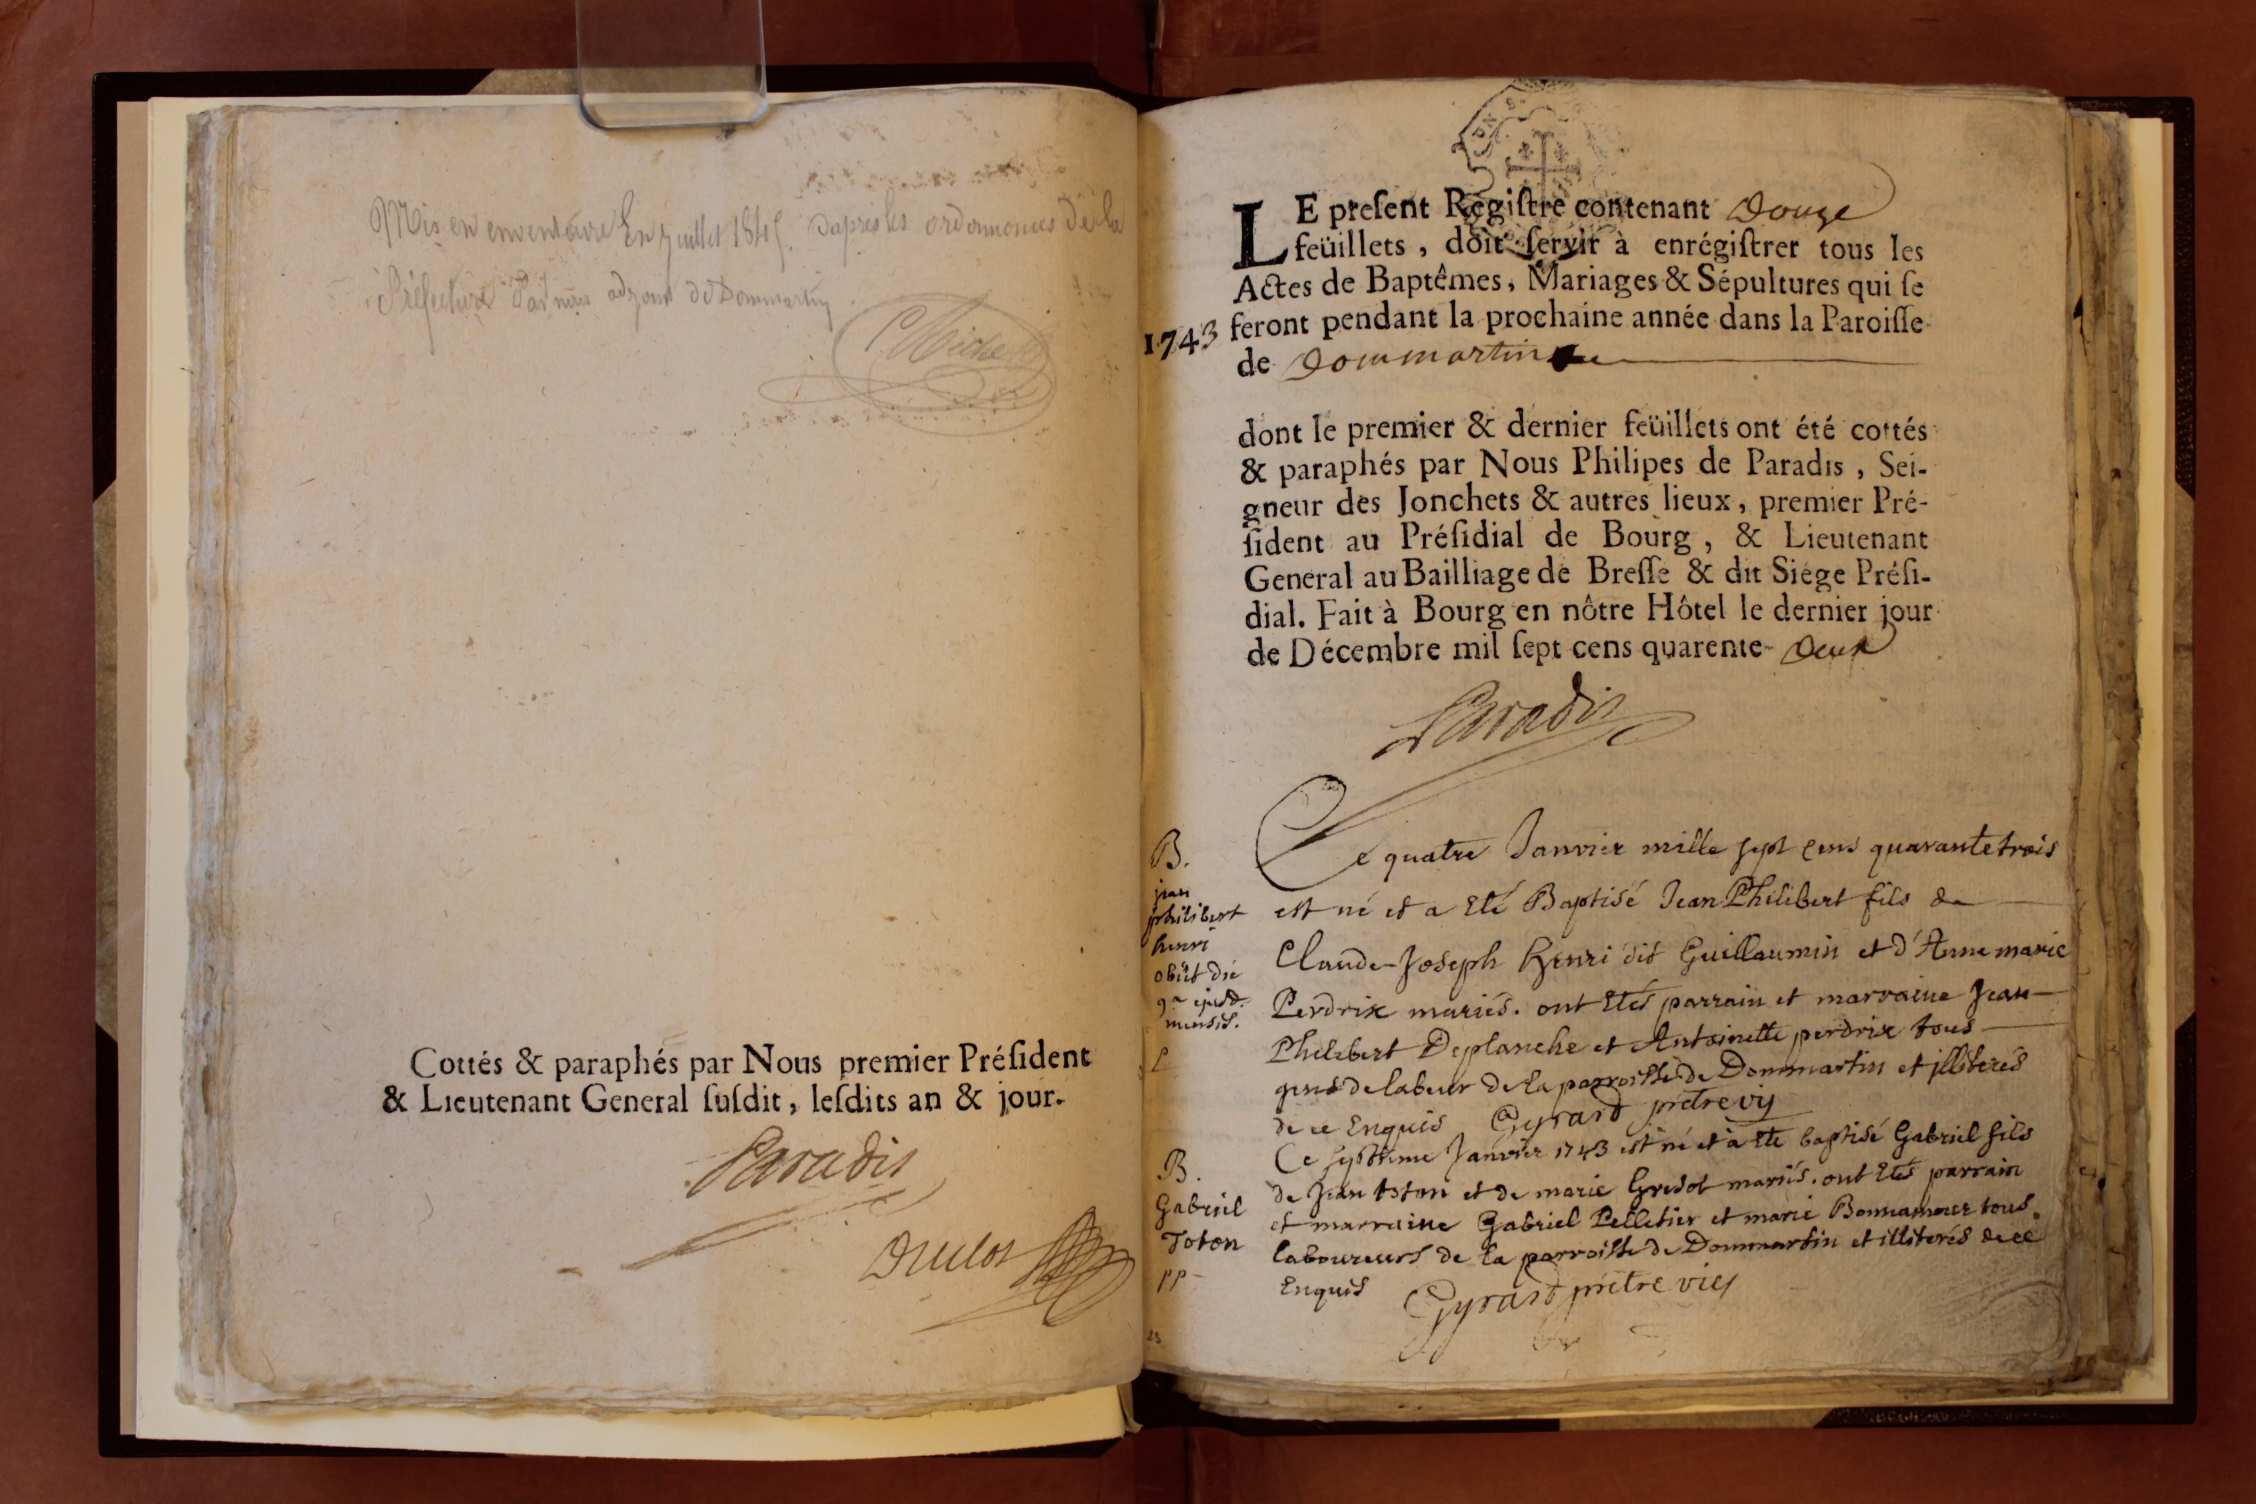 Mis en enventaire En juillet 184 . dapres les ordonnonces dela
Préfecture Par nous adjoint de Dommartin
CMichel
Cottés & paraphés par Nous premier Préſident
& Lieutenant General ſuſdit, leſdits an & jour.
Paradis
Duclos
LE preſent Regiſtre contenant Douze
feüillets, doit ſervir à enrégiſtrer tous les
Actes de Baptêmes, Mariages & Sépultures qui ſe
1743 feront pendant la prochaine année dans la Paroiſſe
de Dommartin
dont le premier & dernier feüillets ont été cottés
& paraphés par Nous Philipes de Paradis, Sei-
gneur des Jonchets & autres lieux, premier Pré-
ſident au Préſidial de Bourg, & Lieutenant
General au Bailliage de Breſſe & dit Siége Préſi-
dial. Fait à Bourg en nôtre Hôtel le dernier jour
de Décembre mil ſept cens quarente- Deux
Paradis
B.
jean
philibert
henri
obiit die
9ª ejusd.
mensis.
P
Ce quatre Janvier mille sept cens quarante trois
est né et a Eté Baptisé Jean Philibert fils de
Claude-Joseph Henri dit Guillaumin et d'Anne marie
Perdrix mariés. ont Etés parrain et marraine Jean
Philibert Deplanche et Antoinette perdrix tous
gens de labeur de la parroisse de Dommartin et illiterés
de ce Enquis Gyrard prêtre vic
B.
Gabriel
Toton
PP
Ce septième Janvier 1743 est né et a Eté baptisé Gabriel fils
de Jean toton et de marie Gredot mariés. ont Etés parrain
et marraine Gabriel Pelletier et marie Bonnamour tous
laboureurs de la parroisse de Dommartin et illiterés de ce
Enquis Gyrard prêtre vic